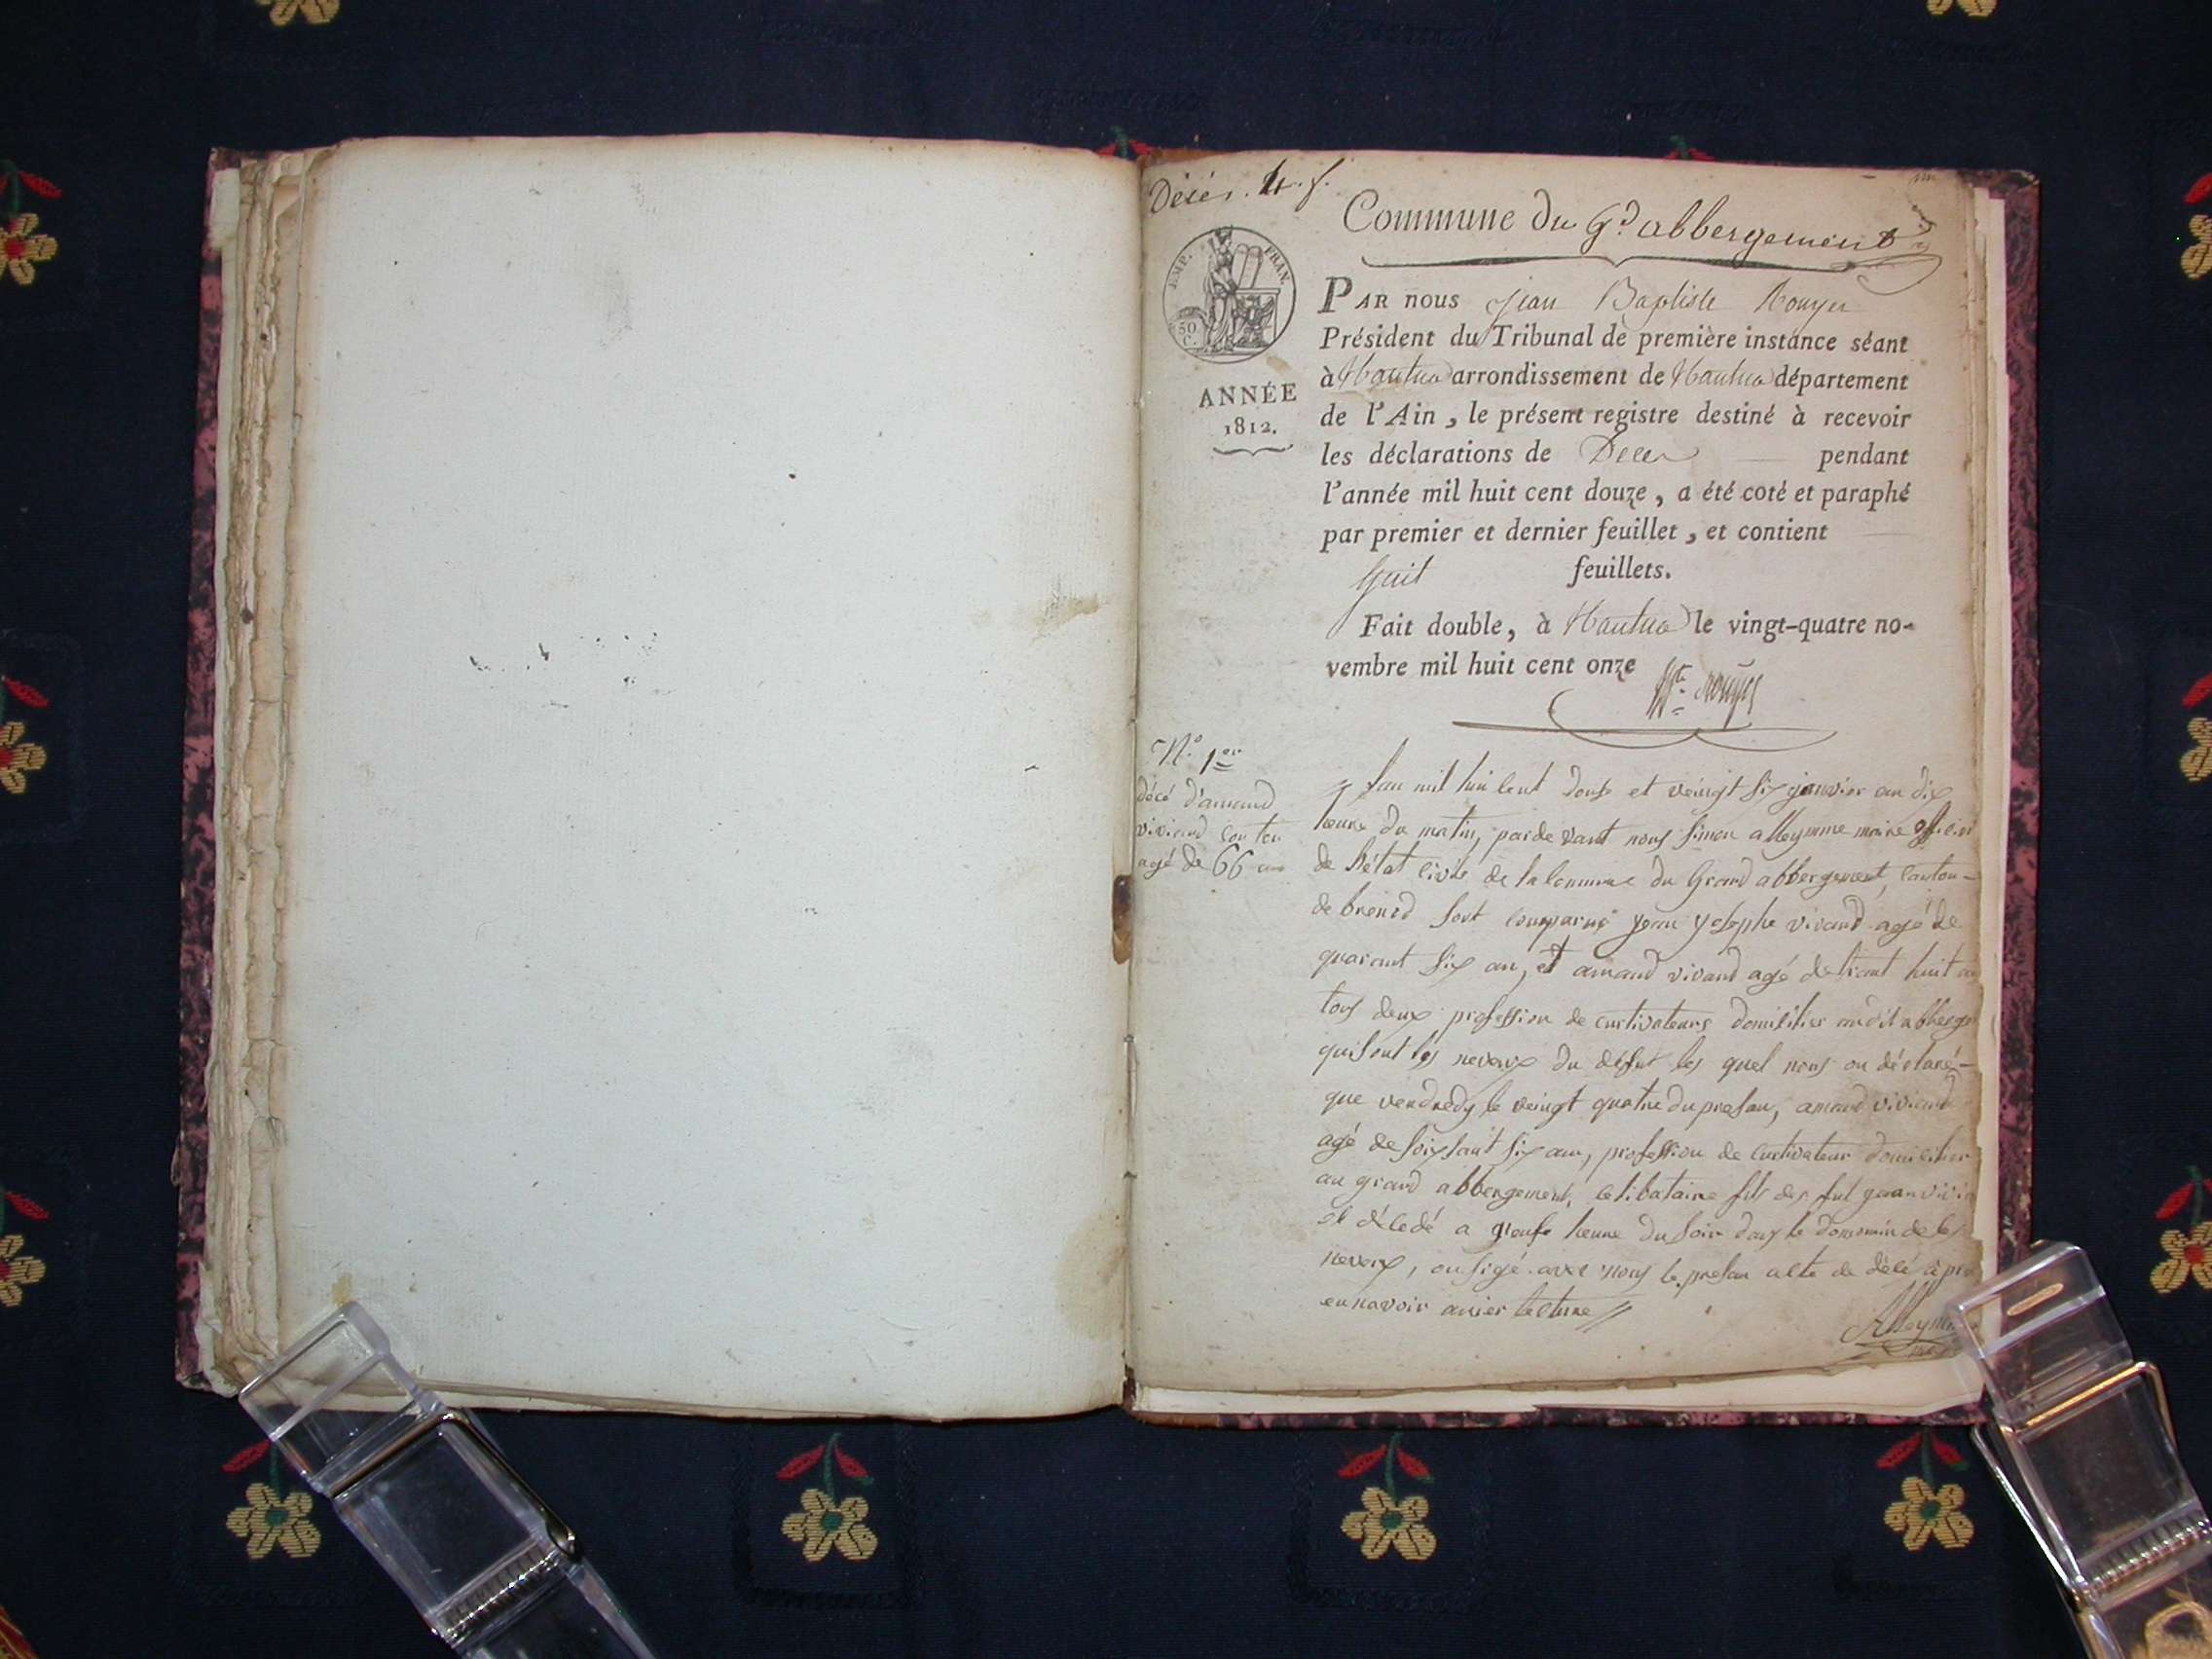 Décés. 4. f.
Commune du Gd. abbergement
IMP. FRAN.
50
C.
ANNÉE
1812.
PAR nous Jean Baptiste Rouyer
Président du Tribunal de première instance séant
à Nantua arrondissement de Nantua département
de l'Ain, le présent registre destiné à recevoir
les déclarations de Deces pendant
l'année mil huit cent douze, a été coté et paraphé
par premier et dernier feuillet, et contient
huit feuillets.
Fait double, à Nantua le vingt-quatre no-
vembre mil huit cent onze
Bte. Rouyer
N.o 1er
décé d'amand
viviand
agé de 66 ans
lan mil hui cent douse et veingt six janvier au dix
heure du matin, par de vant nous simon alleymme maire officier
de l'état civile de la commune du Grand abbergement, canton-
de brenod sont comparus jean yosephe vivand agé de
quarant six an, et amand vivand agé de trant huit an
tous deux profession de curtivateurs domicilier audit abberge
qui sont les neveux du défut les quel nous on déclaré-
que vendredy le veingt quatre du presan, amand viviand
agé de soixsant six ans, profession de curtivateur domicilier
au grand abbergement, celibataire fils des fut jean vivi
et décedé a heure du soir dans le de ses
neveux, on sigé avec nous le presan acte de décé apre
en navoir anier lecture //
Alleymme